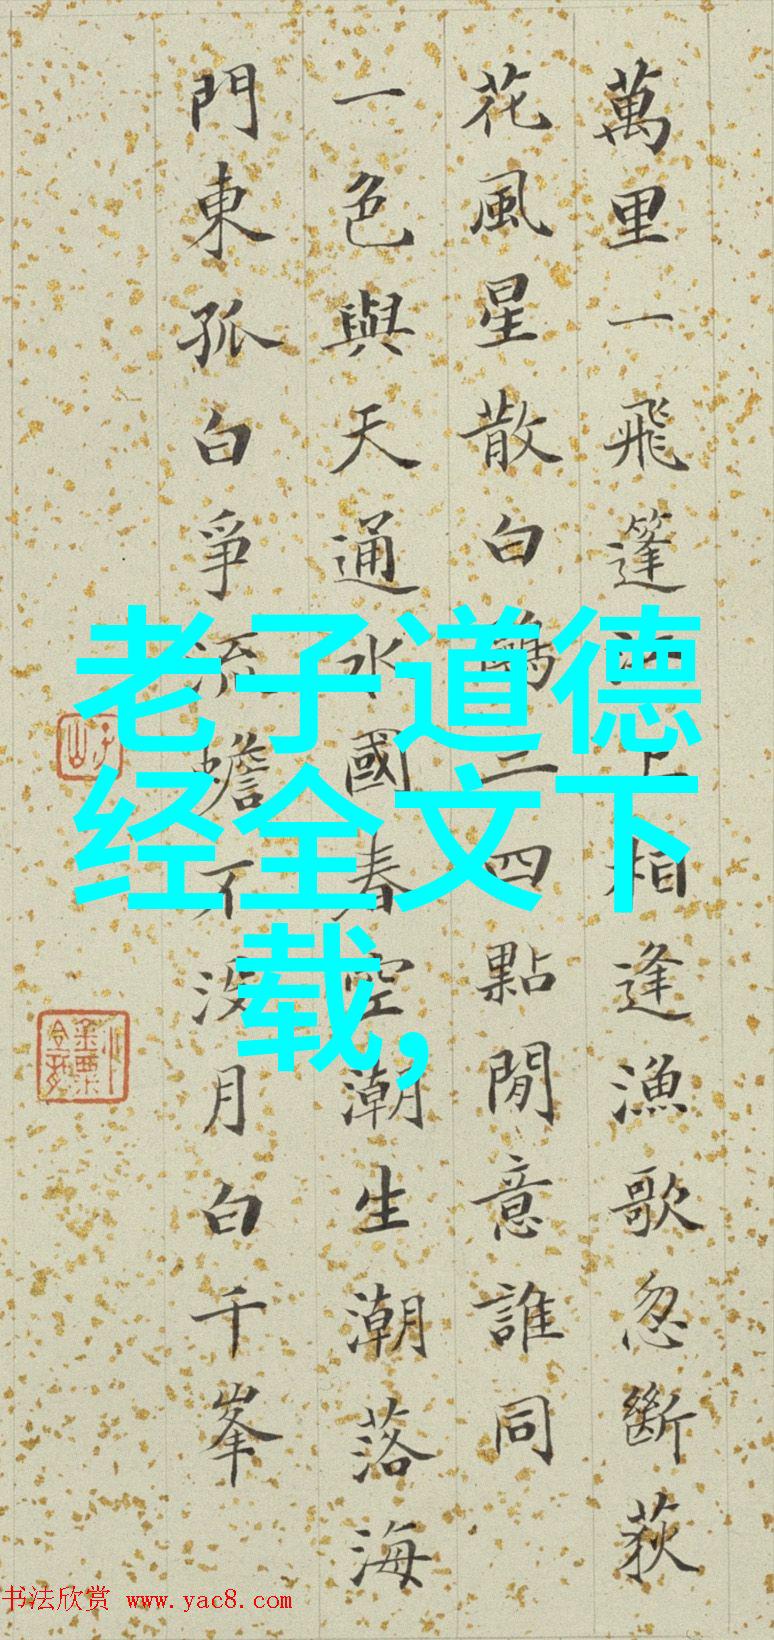 萬里一飛篷上相逢漁歌忽斷荻
花風星散白鷗三四點閒意誰同
一色與天通水國春空潮生潮落海
門東孤白爭流蟾不没月白千峯
老子道德
经全文下
载,
书法欣赏 www.yac8.com